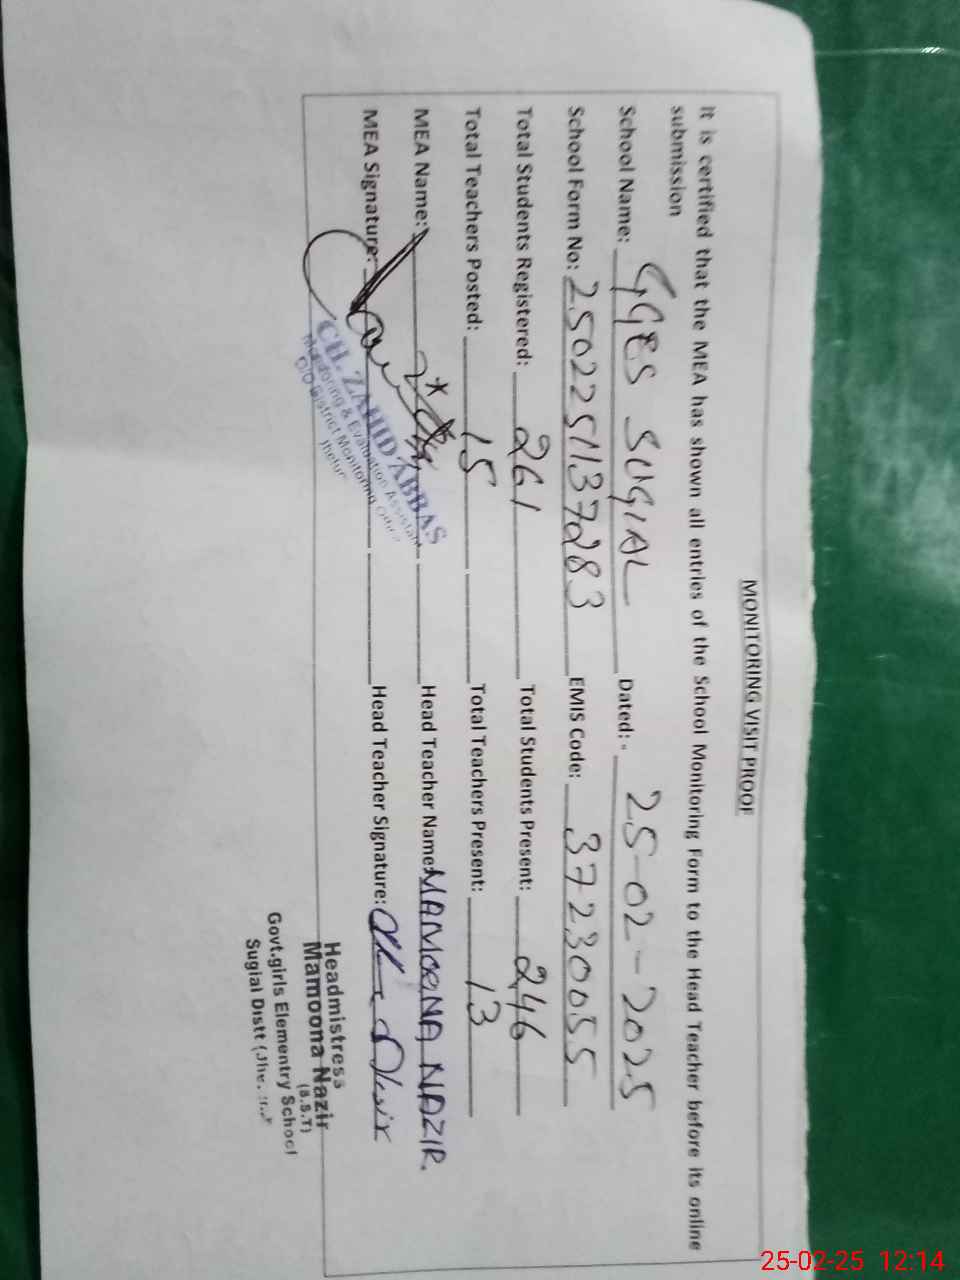 MONITORING VISIT PROOF
It is certified that the MEA has shown all entries of the School Monitoring Form to the Head Teacher before its online
submission
School Name: GGES SUGIAL Dated: - 25-02-2025
School Form No: 2502251137283 EMIS Code: 37230055
Total Students Registered: 261 Total Students Present: 246
Total Teachers Posted: 15 Total Teachers Present: 13
MEA Name: Head Teacher Name: MAMOONA NAZIR.
MEA Signature: Head Teacher Signature:
CH. ZAHID ABBAS
Monitoring & Evaluation Assistant
O/O District Monitoring Officer
Jhelum
Headmistress
Mamoona Nazir
(S.S.T)
Govt.girls Elementry School
Sugial Distt
25-02-25 12:14